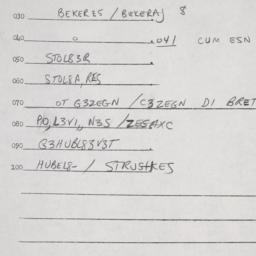 030 BEKERES / BEKERAJ 8
040 o .041 CUM ESN
050 STOL83R
060 STOLSA, RES
070 OT G3ZEGN / C3ZEGN DI BRET
080 PO, L3VI, N3S / ZESAXC
090 G3HUBL83V3T
100 HUBELS- / STRUSHKES